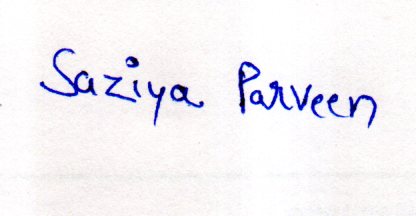 Saziya Parveen